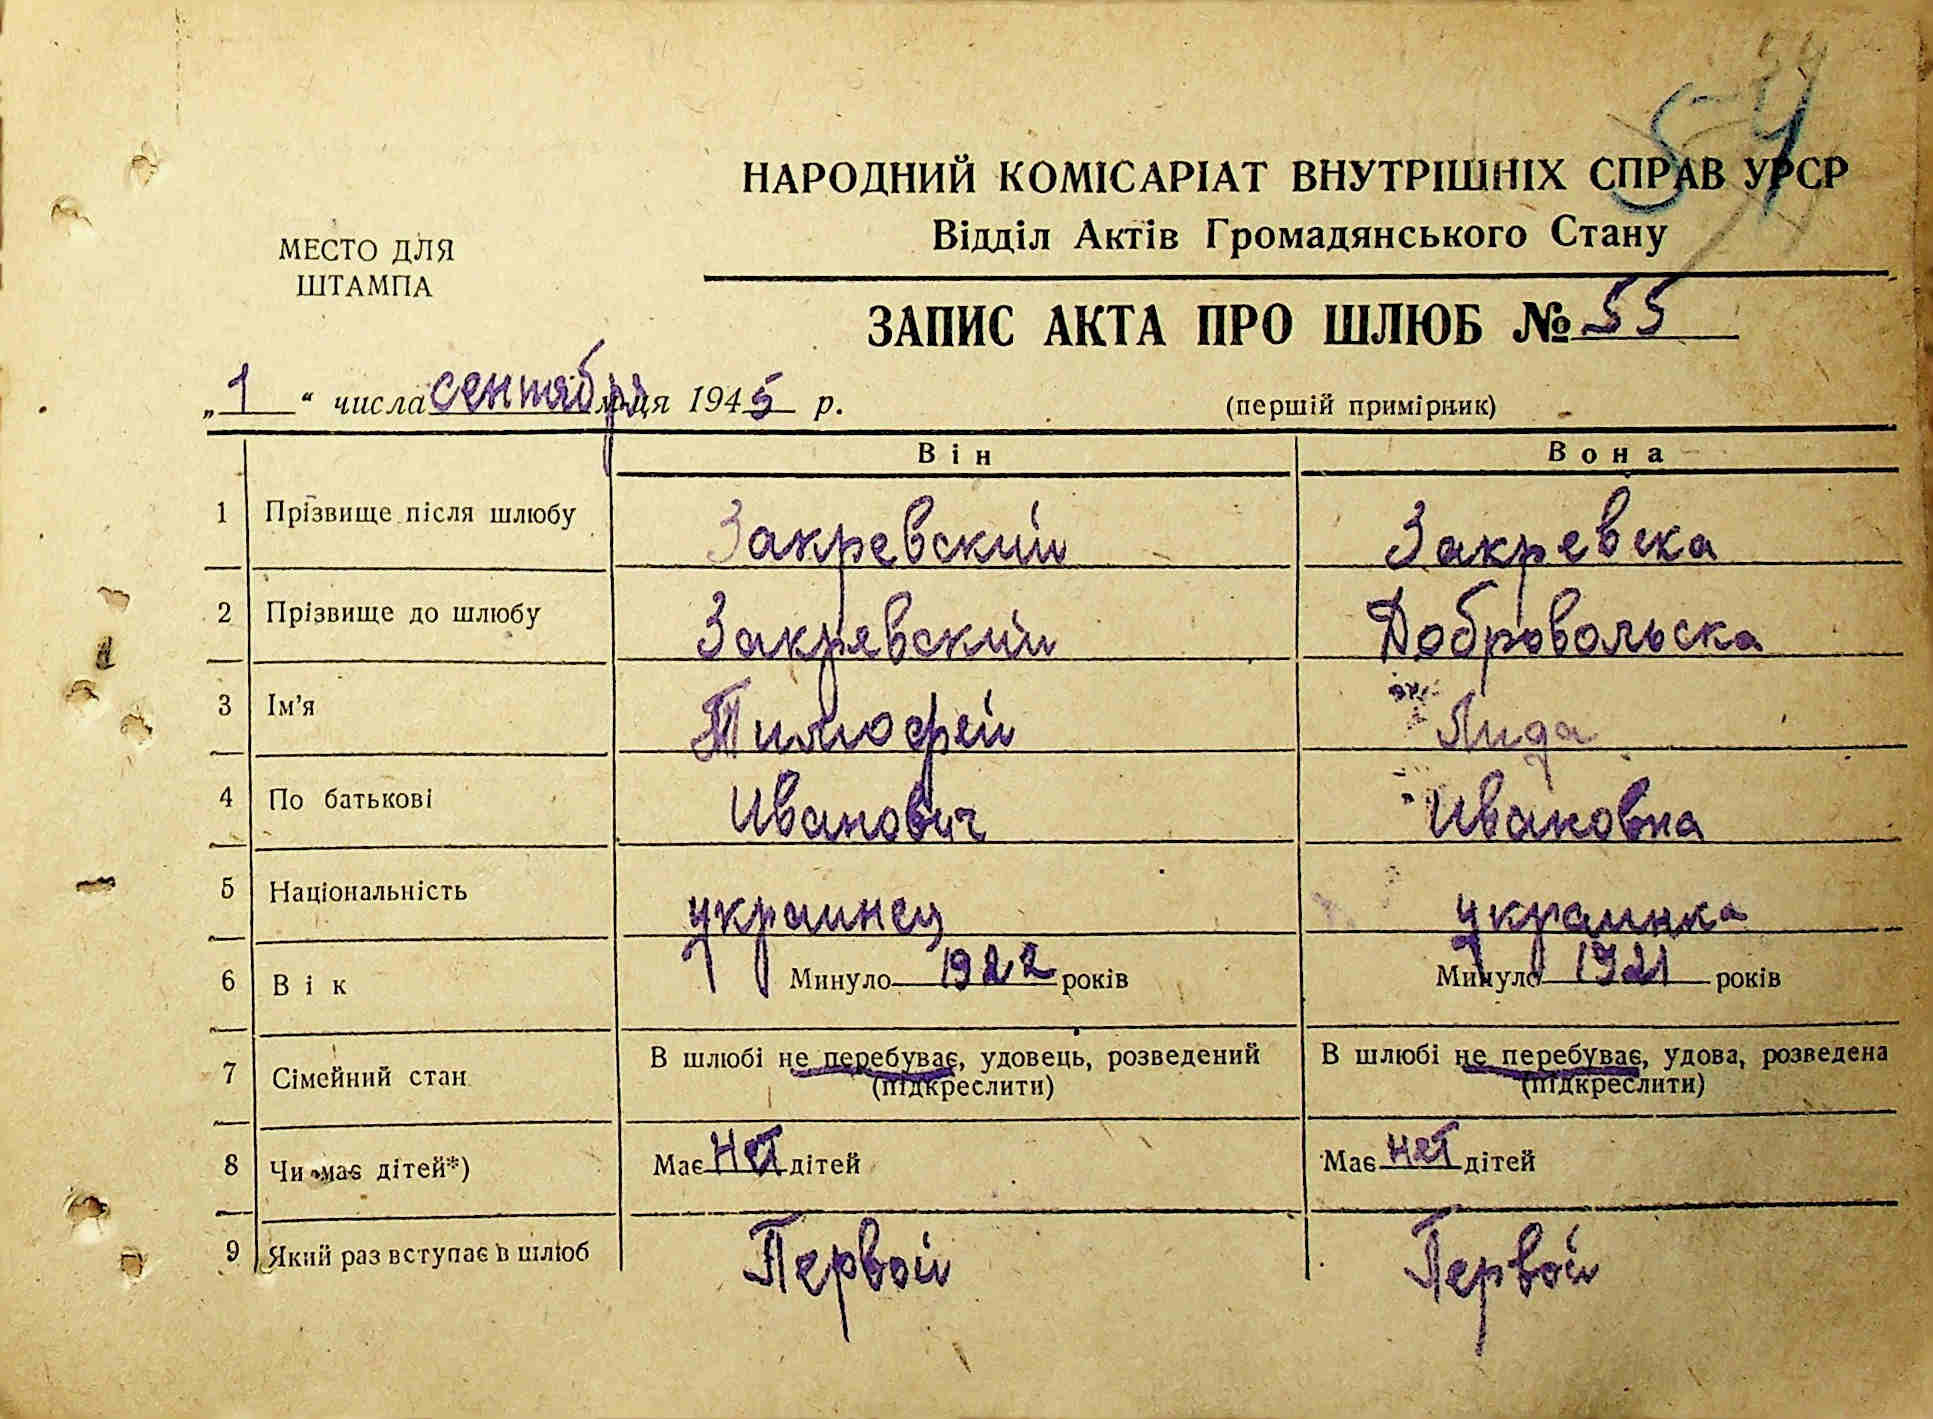 54
54
НАРОДНИЙ КОМІСАРІАТ ВНУТРІШНІХ СПРАВ УРСР
Відділ Актів Громадянського Стану
МЕСТО ДЛЯ
ШТАМПА
ЗАПИС АКТА ПРО ШЛЮБ № 55
„1“ числа сентября м-ця 1945 р.
(перший примірник)
Він Вона
1 Прізвище після шлюбу Закревский Закревска
2 Прізвище до шлюбу Закревский Добровольска
3 Ім'я Тимофей Лида
4 По батькові Иванович Ивановна
5 Національність украинец украинка
6 Вік Минуло 1922 років Минуло 1921 років
7 Сімейний стан В шлюбі не перебуває, удовець, розведений В шлюбі не перебуває, удова, розведена
(підкреслити) (підкреслити)
8 Чи має дітей*) Має нет дітей Має нет дітей
9 Який раз вступає в шлюб Первой Первой